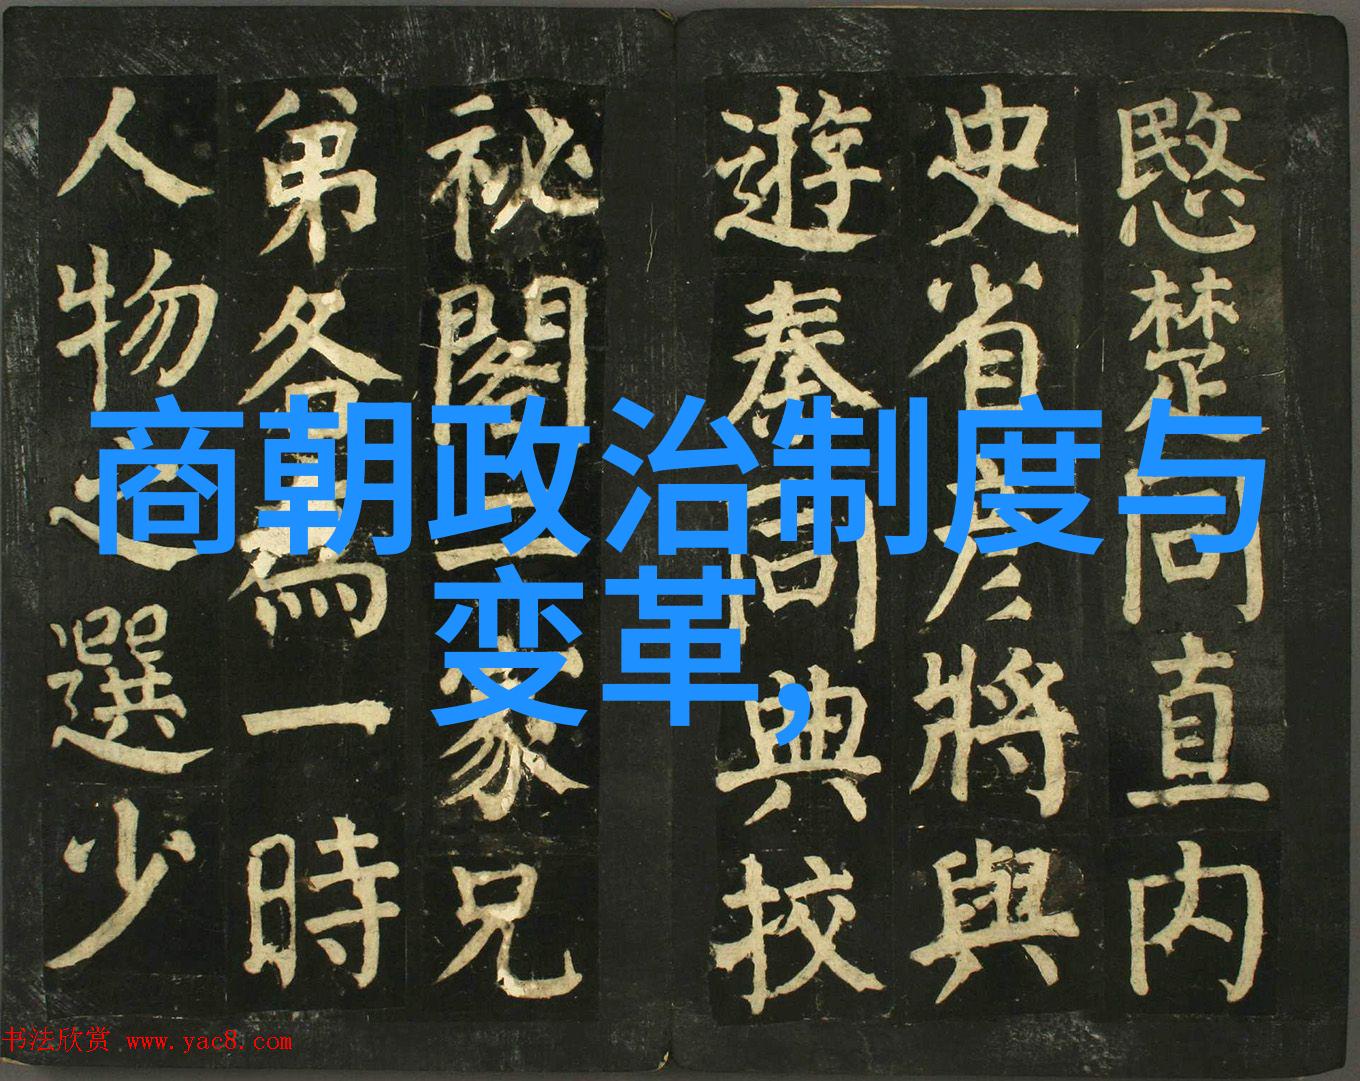 愍楚同直内
史省彦將與
遊秦同典校
祕閣二家兄
弟各為一時
人物之選少
商朝政治制度与
变革,
书法欣赏 www.yac8.com